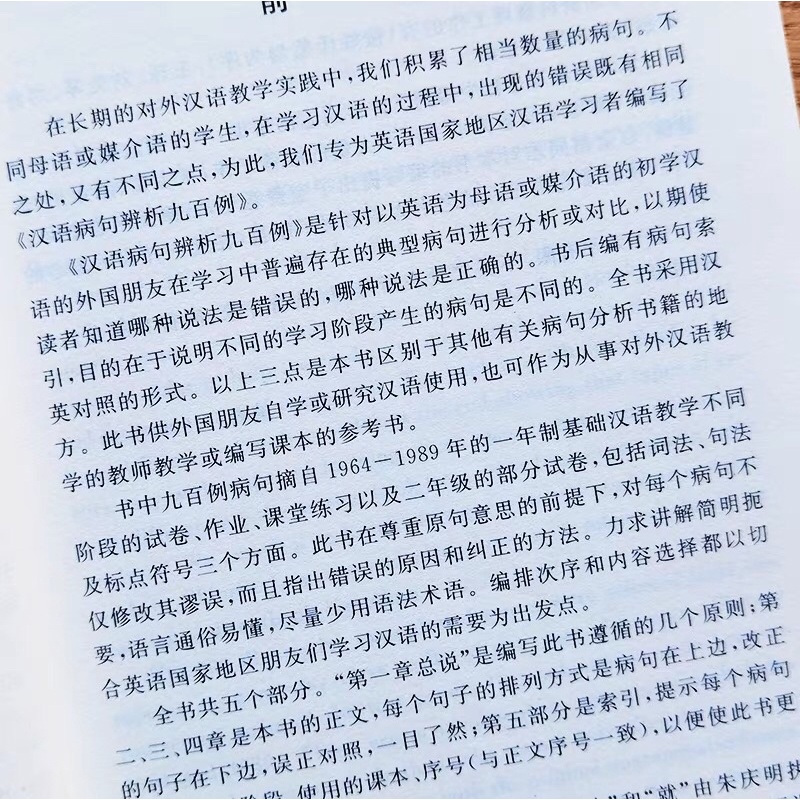 前
在长期的对外汉语教学实践中，我们积累了相当数量的病句。不
同母语或媒介语的学生，在学习汉语的过程中，出现的错误既有相同
之处，又有不同之点，为此，我们专为英语国家地区汉语学习者编写了
《汉语病句辨析九百例》。
《汉语病句辨析九百例》是针对以英语为母语或媒介语的初学汉
语的外国朋友在学习中普遍存在的典型病句进行分析或对比，以期使
读者知道哪种说法是错误的，哪种说法是正确的。书后编有病句索
引，目的在于说明不同的学习阶段产生的病句是不同的。全书采用汉
英对照的形式。以上三点是本书区别于其他有关病句分析书籍的地
方。此书供外国朋友自学或研究汉语使用，也可作为从事对外汉语教
学的教师教学或编写课本的参考书。
书中九百例病句摘自1964—1989年的一年制基础汉语教学不同
阶段的试卷、作业、课堂练习以及二年级的部分试卷，包括词法、句法
及标点符号三个方面。此书在尊重原句意思的前提下，对每个病句不
仅修改其谬误，而且指出错误的原因和纠正的方法。力求讲解简明扼
要，语言通俗易懂，尽量少用语法术语。编排次序和内容选择都以切
合英语国家地区朋友们学习汉语的需要为出发点。
全书共五个部分。“第一章总说”是编写此书遵循的几个原则；第
二、三、四章是本书的正文，每个句子的排列方式是病句在上边，改正
的句子在下边，误正对照，一目了然；第五部分是索引，提示每个病句
阶段、使用的课本、序号（与正文序号一致），以便使此书更
”和“就”由朱庆明执